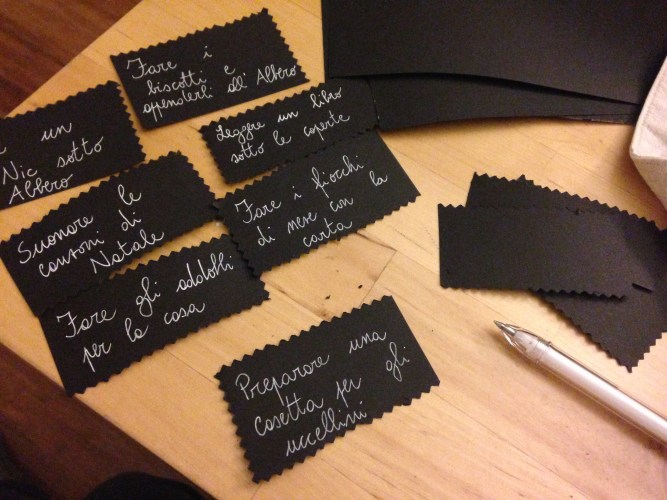 Fare i
biscotti e
appenderli all' Albero
un
Nic sotto
Albero
Leggere un libro
sotto le coperte
Suonare le
canzoni di
Natale
Fare i fiocchi
di neve con la
carta
Fare gli addobbi
per la casa
Preparare una
casetta per gli
uccellini